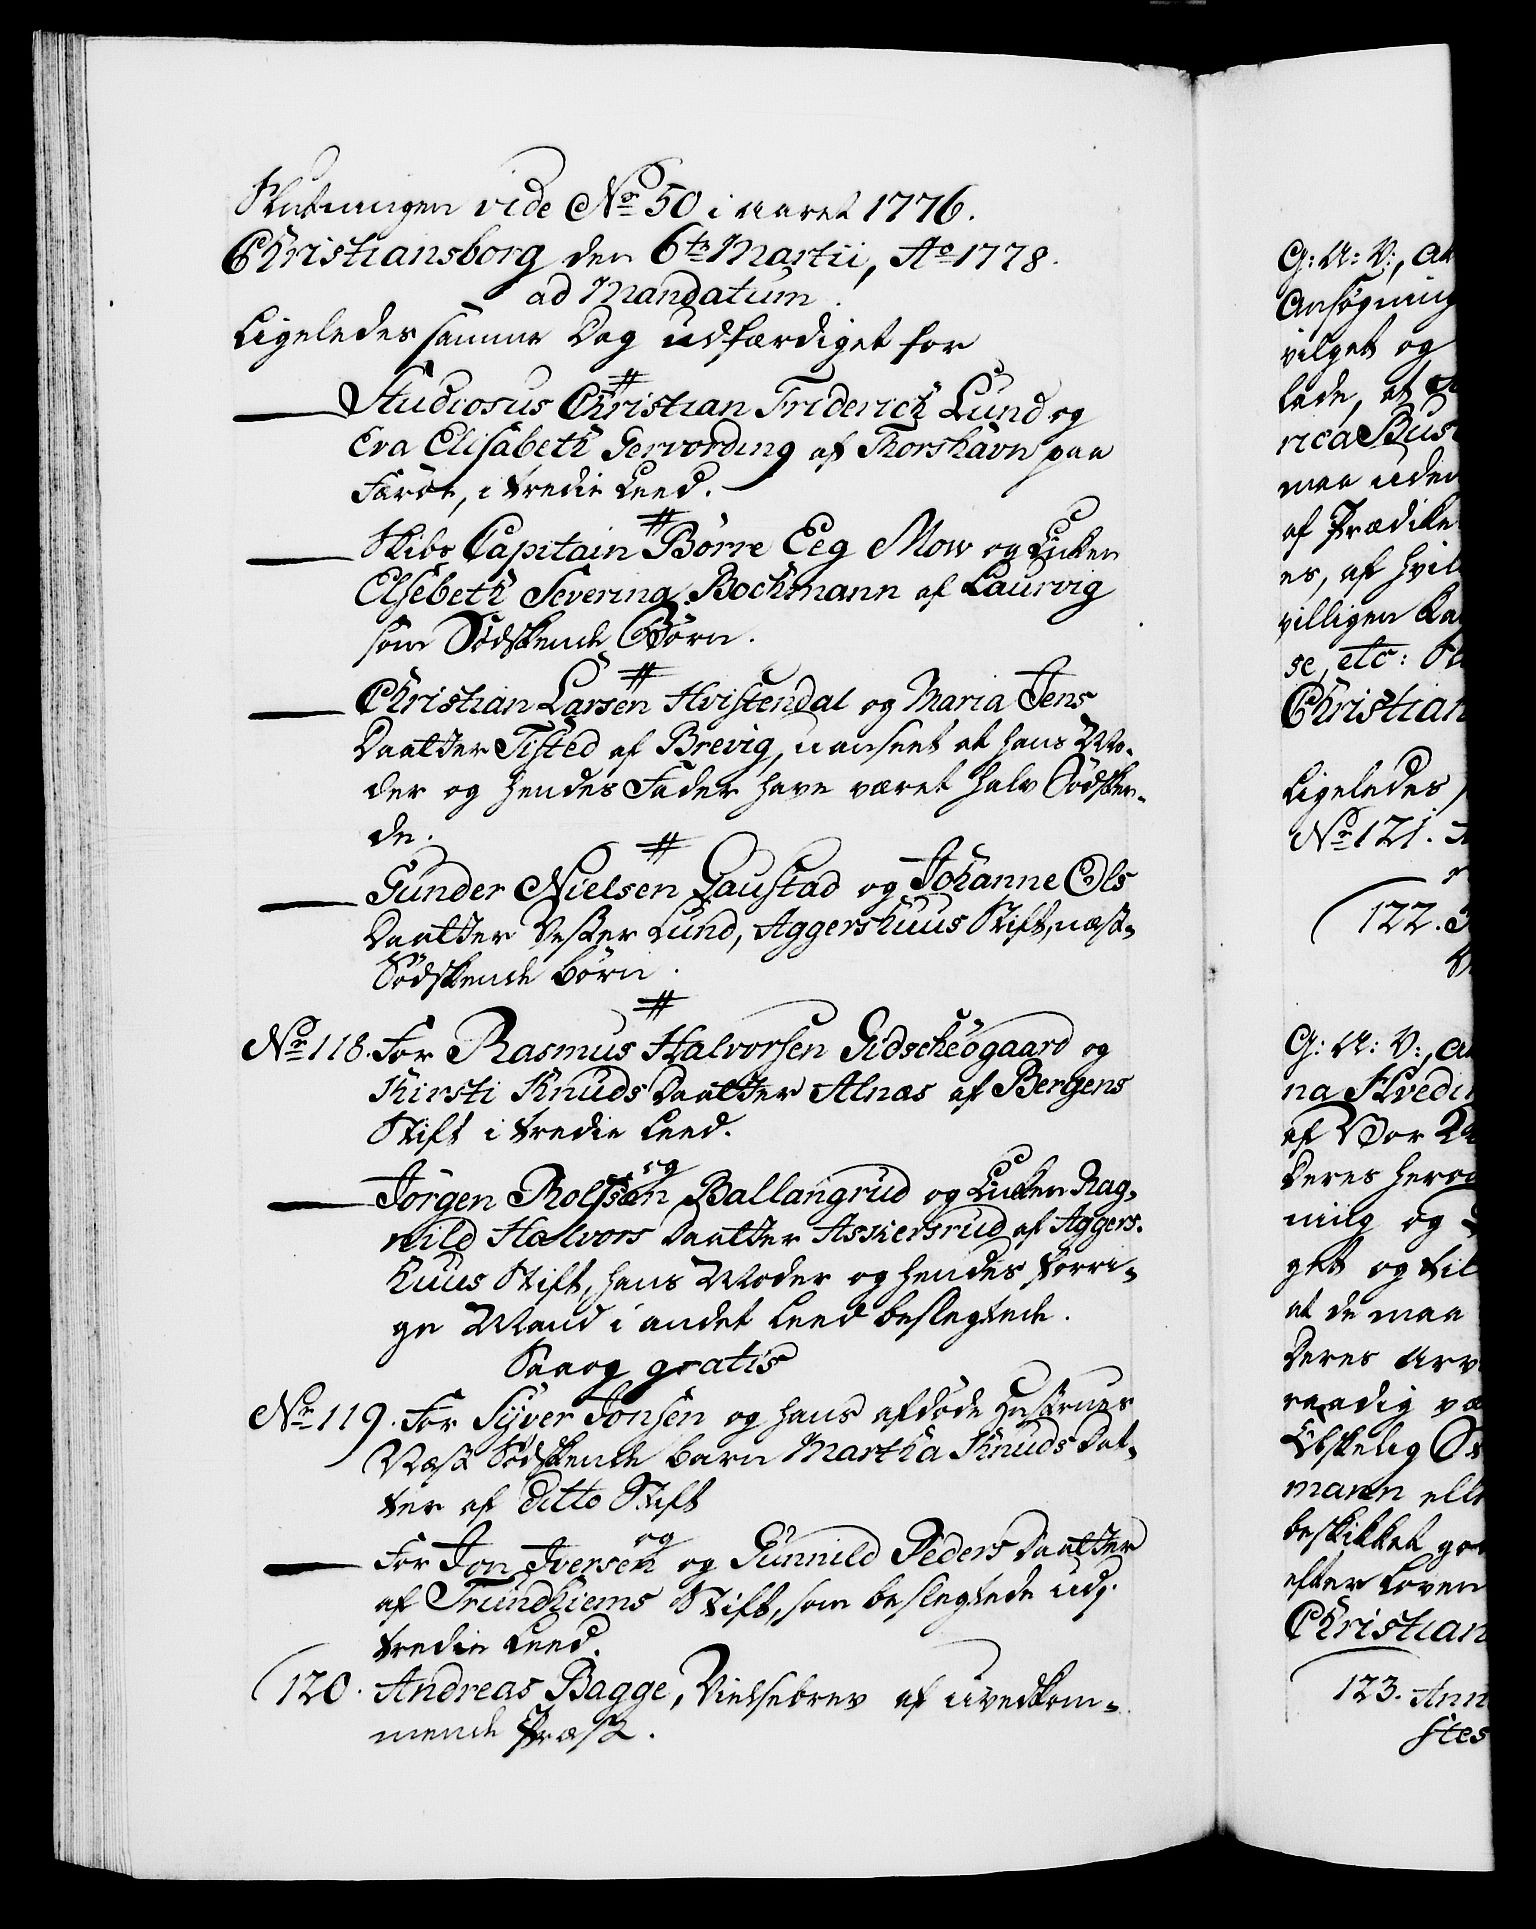 Slutningen vide No 50 i aaret 1776.
Christiansborg den 6te Martii, Ao 1778.
ad Mandatum.
Ligeledes samme Dag udfærdiget for
#
— Studiosus Christian Friderich Lund og
Eva Elisabeth Gervording af Thorshavn paa
Færöe, i tredie Leed.
#
— Skibs Capitain Börre Eeg Mow og Enken
Elsebeth Severina Bochmann af Laurvig
som Södskende Börn.
#
— Christian Larsen Hvistendal og Maria Jens
Daatter Tisted af Brevig, uanseet at hans Mo-
der og hendes Fader have været halv Södsken-
de.
#
— Gunder Nielsen Gaustad og Johanne Ols
Daatter Vester Lund, Aggershuus Stift, næst-
Södskende börn.
#
No 118. For Rasmus Halvorsen Gidscheögaard og
Kirsti Knuds Daatter Alnæs af Bergens
Stift i tredie Leed.
og
— Jörgen Rolfsen Ballangrud og Enken Rag-
nild Halvors Daatter Askersrud af Aggers-
huus Stift, hans Moder og hendes forri-
ge Mand i andet Leed beslegtede.
Saaog gratis
No 119. For Syver Jonsen og hans afdöde Hustrues
Næst Södskende barn Martha Knuds Dat-
ter af ditto Stift
og
— For Jon Iversen og Gunnild Peders Daatter
af Trundhiems Stift, som beslegtede udj
tredie Leed.
(120. Andreas Bagge, Vielsebrev af uvedkom-
mende Præst.
G: A: V:,
Ansögning
vilget og
lade, at
rica
maa uden
af Prædike
es, af
villigen
se, etc:
Christian
Ligeledes
No 121.
(122.
G: A: V:,
na
af Vor
Deres
ning og
get og til
at de maa
Deres Arv
raadig
mann
beskikket
efter Loven
Christian
123. Ann